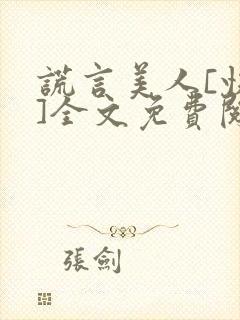 謊言美人[忄
]全文免費閱
張劍